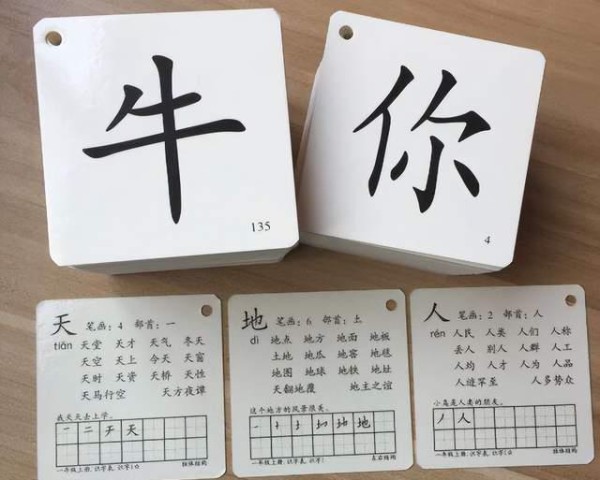 牛
135
你
4
天 笔画：4 部首：一
tiān 天堂 天才 天气 冬天
天空 天上 今天 天窗
天时 天资 天桥 天性
天马行空 天方夜谭
我天天去上学。
一 二 チ 天
一年级上册，识字表，识字1
独体结构
地 笔画：6 部首：土
dì 地点 地方 地面 地板
土地 地瓜 地窖 地毯
地图 地球 地铁 地址
天翻地覆 地主之谊
这个地方的风景很美。
地
一年级上册，识字表，识字1
左右结构
人 笔画：2 部首：人
rén 人民 人类 人们 人称
丢人 别人 人群 人工
人均 人才 人为 人品
人迹罕至 人多势众
小鸟是人类的朋友。
丿 人
一年级上册，识字表，识字1
独体结构